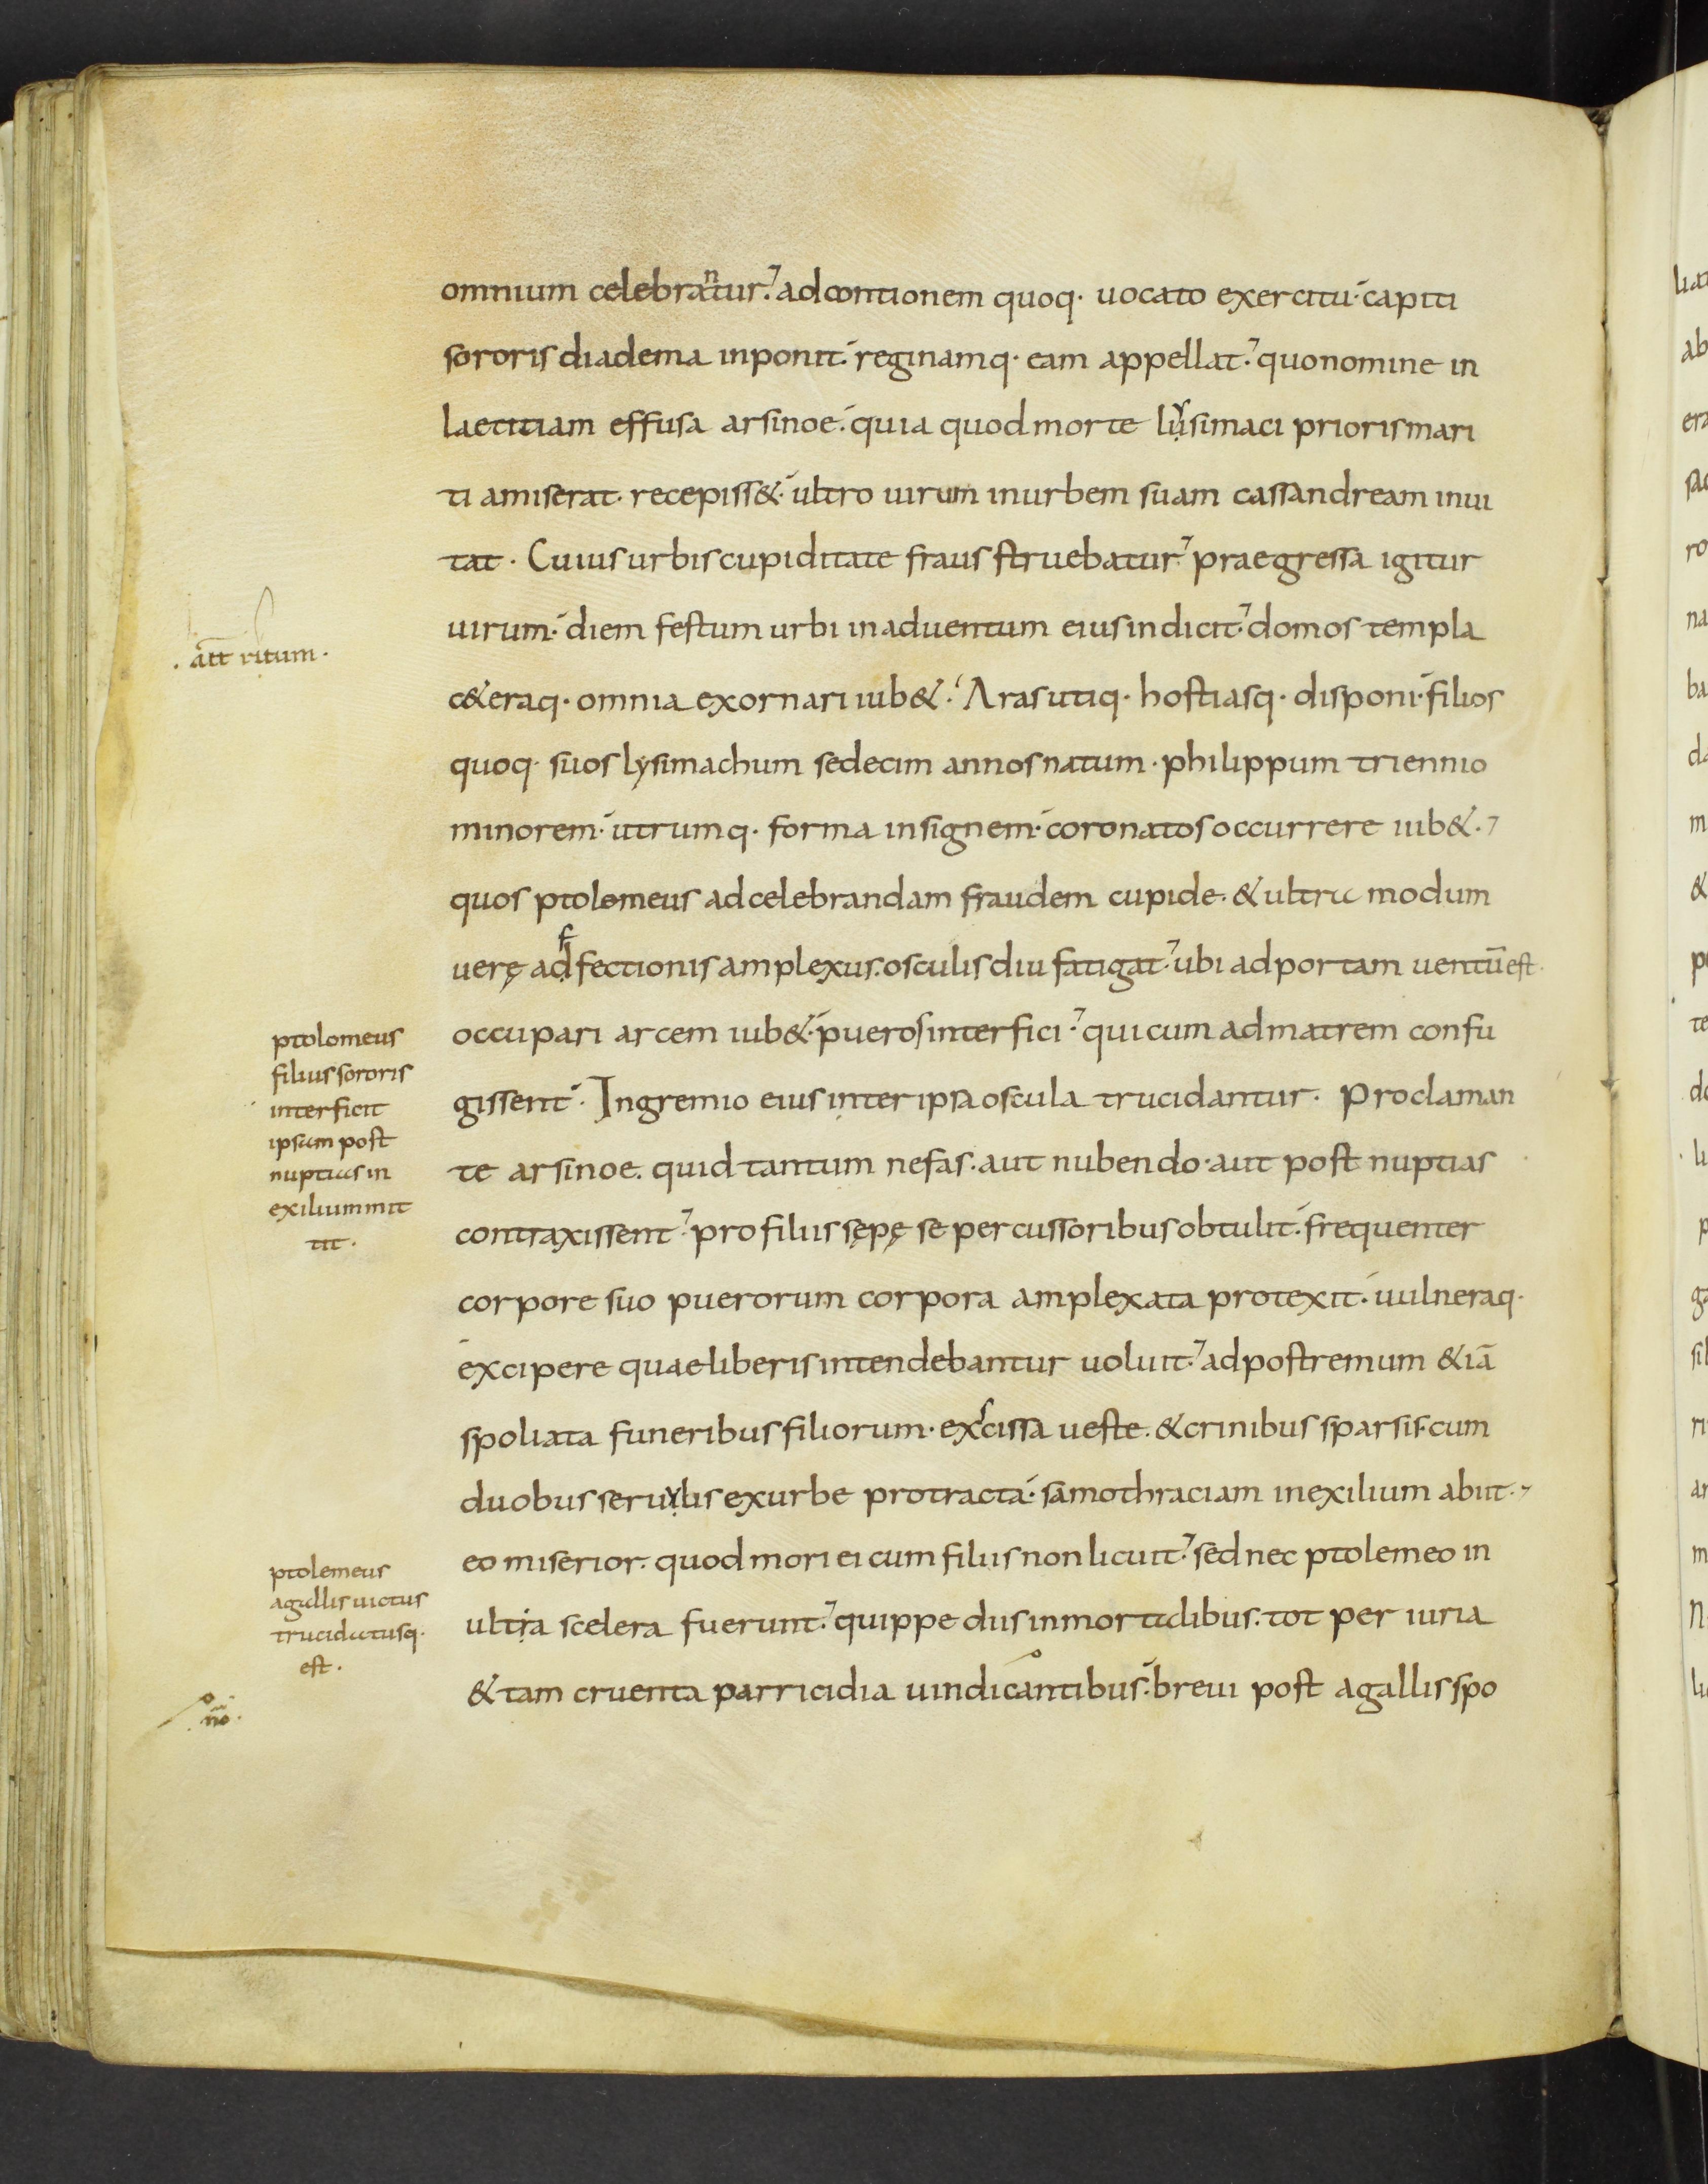 omnium celebrantur. ad contionem quoq· uocato exercitu· capiti
sororis diadema inponit. reginamq· eam appellat. quo nomine in
laetitiam effusa arsinoe. quia quod morte lysimaci prioris mari
ti amiserat· recepiss&· ultro uirum in urbem suam cassandream inui
tat· Cuius urbis cupiditate fraus struebatur. praegressa igitur
uirum· diem festum urbi in aduentum eius indicit· domos templa
c&eraq· omnia exornari iub&· Aras utiq· hostiasq· disponi· filios
quoq· suos lysimachum sedecim annos natum· philippum triennio
minorem· utrumq· forma insignem· coronatos occurrere iub&·
quos ptolomeus ad celebrandam fraudem cupide· & ultra modum
uerę adffectionis amplexus. osculis diu fatigat· ubi ad portam uentū est·
occupari arcem iub&· pueros interfici· qui cum ad matrem confu
gissent· In gremio eius inter ipsa oscula trucidantur· Proclaman
te arsinoe. quid tantum nefas· aut nubendo· aut post nuptias
contraxissent· pro filiis sępę se percussoribus obtulit. frequenter
corpore suo puerorum corpora amplexata protexit· uulneraq·
excipere quae liberis intendebantur uoluit· ad postremum & iā
spoliata funeribus filiorum· exscissa ueste· & crinibus sparsis· cum
duobus seruylis ex urbe protracta· samothraciam in exilium abiit·
eo miserior· quod mori ei cum filiis non licuit· sed nec ptolemeo in
ultia scelera fuerunt· quippe diis inmortalibus· tot periuria
& tam cruenta parricidia uindicantibus· breui post a gallis spo
· att ritum·
ptolomeus
filius sororis
interficit
ipsam post
nuptias in
exilium mit
tit·
ptolemeus
a gallis uictus
trucidatusq·
est·